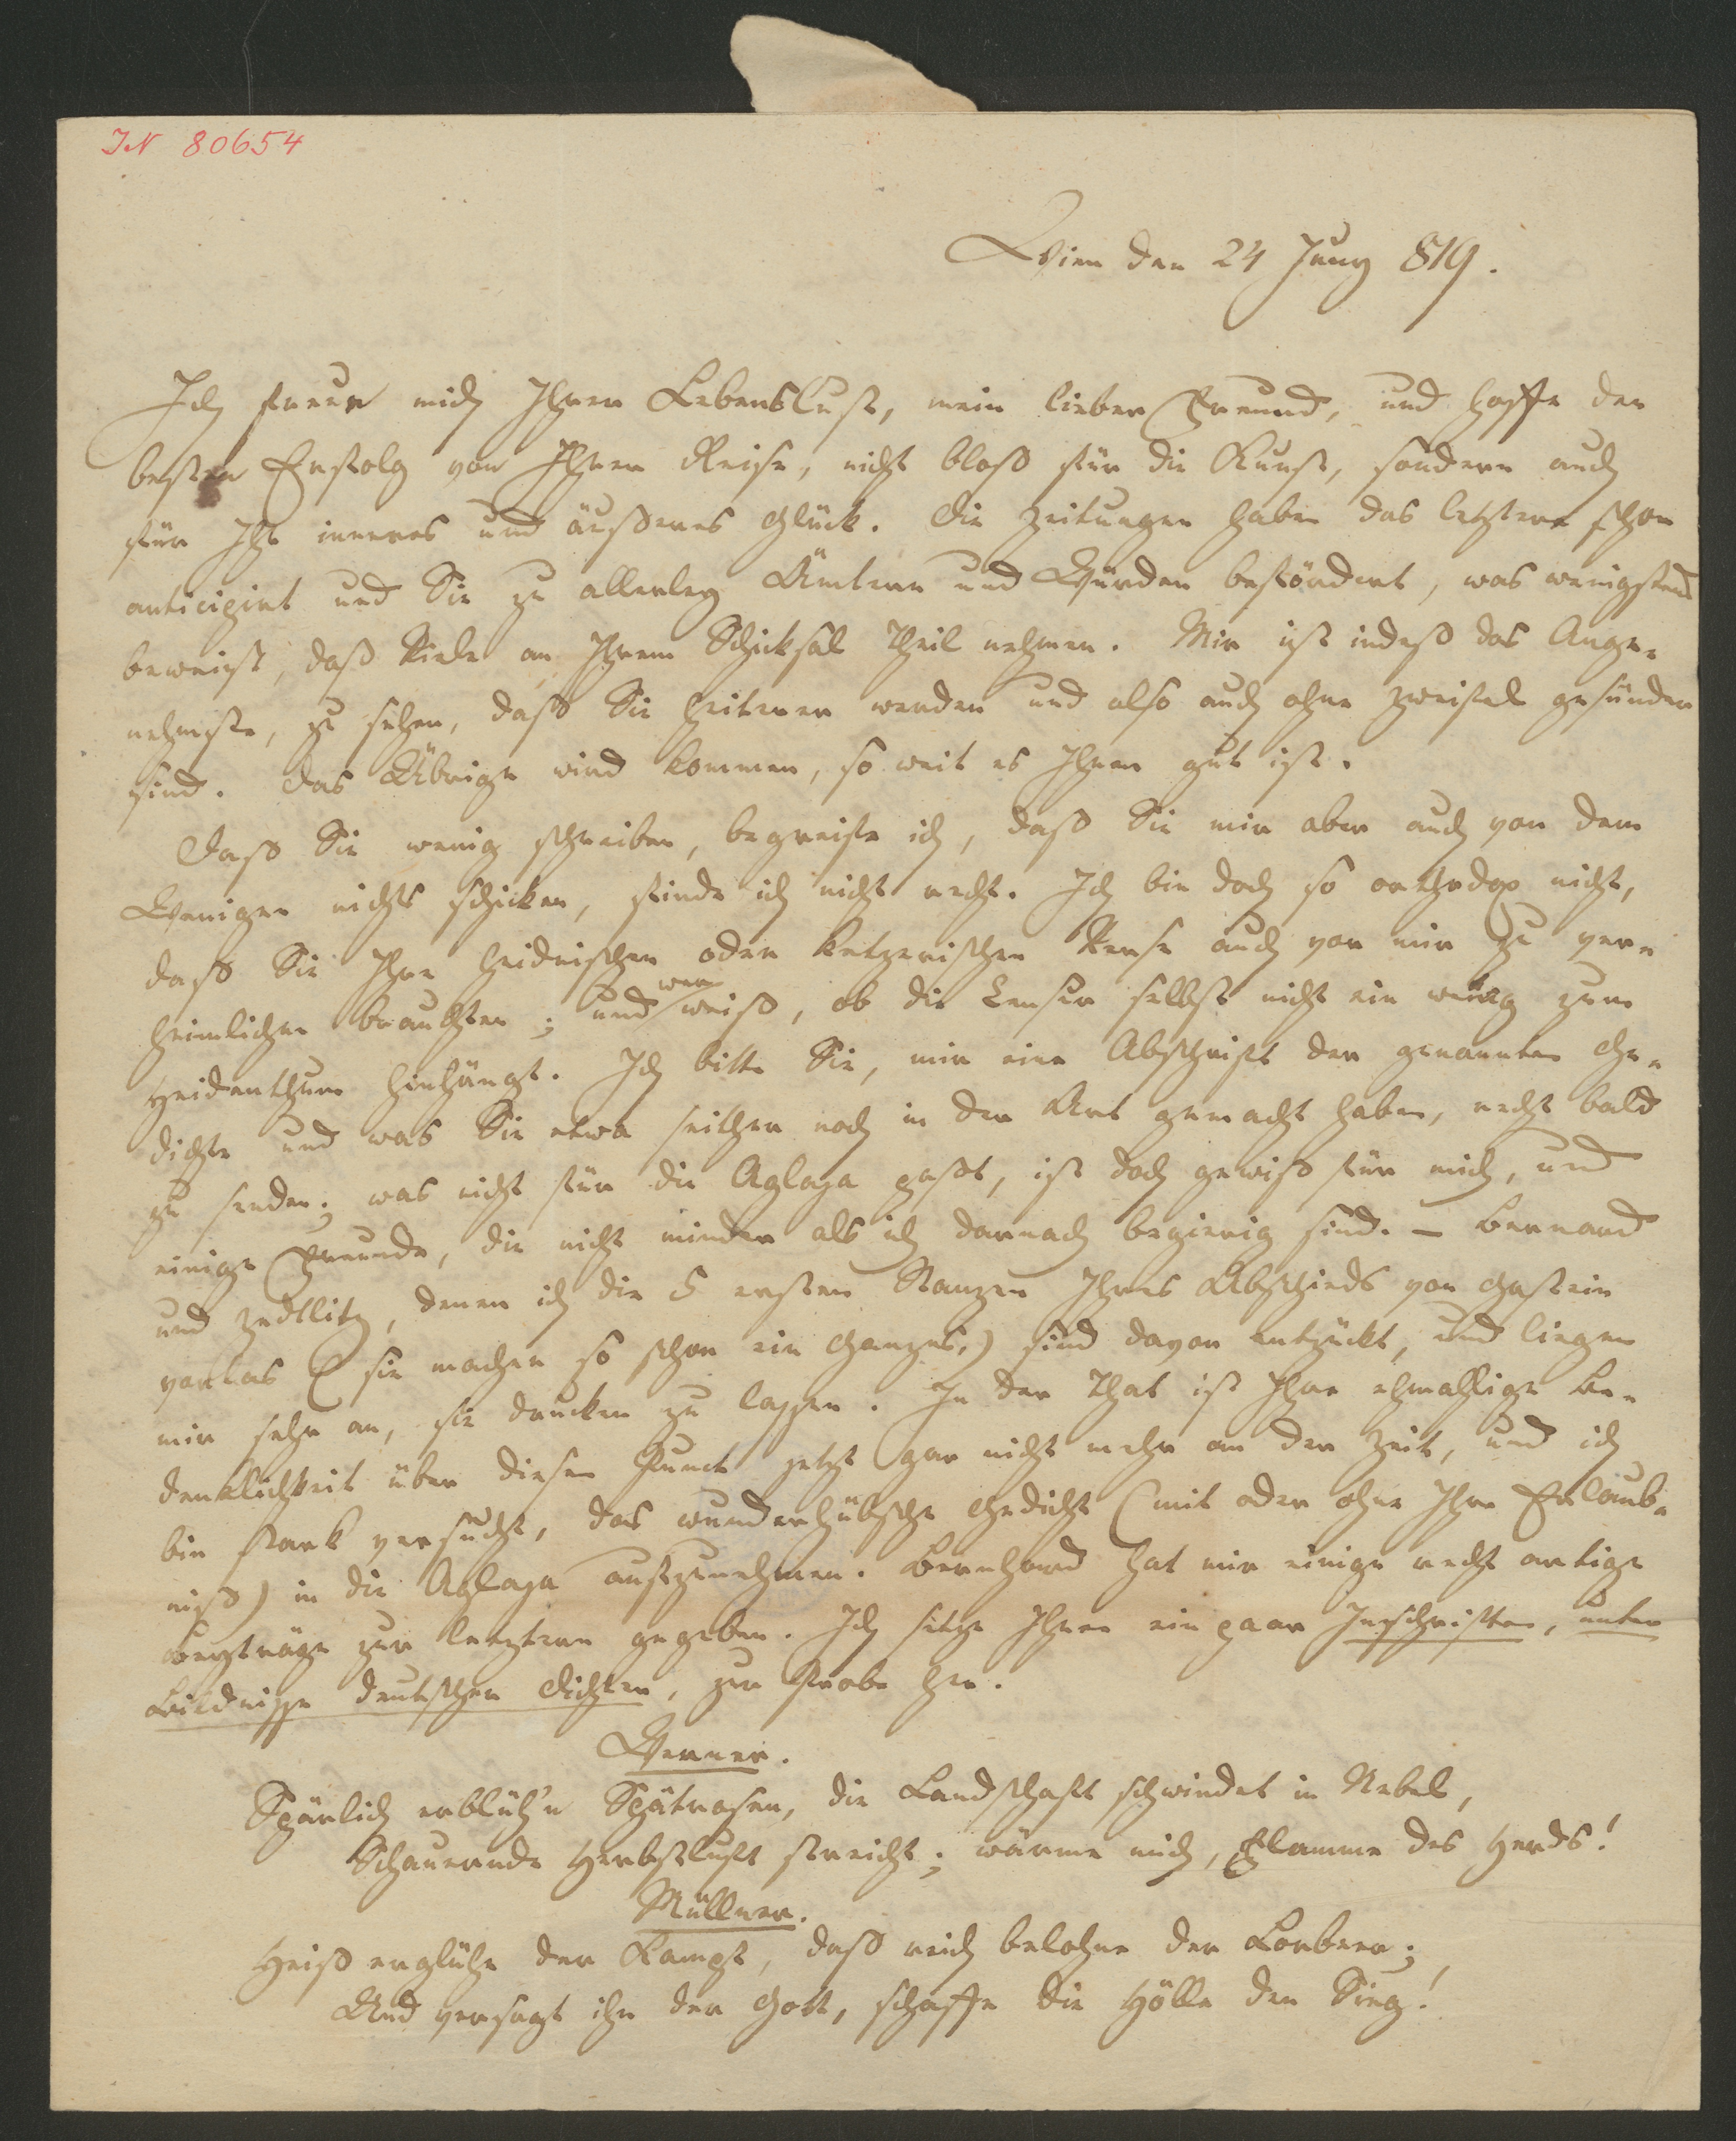 IN 80654
Wien den 24 Juny 819.
Ich freue mich Ihrer Lebenslust, mein lieber Freund, und hoffe den
besten Erfolg von Ihrer Reise, nicht bloß für die Kunst, sondern auch
für Ihr inneres und äußeres Glück. Die Zeitungen haben das letztere schon
anticipirt und Sie zu allerley Ämtern und Würden befördert, was wenigstens
beweist, daß Viele an Ihrem Schicksal Theil nehmen. Mir ist indeß das Ange-
nehmste, zu sehen, daß Sie heiterer werden und also auch ohne Zweifel gesünder
sind. Das Übrige wird kommen, so weit es Ihnen gut ist.
Daß Sie wenig schreiben, begreife ich, daß Sie mir aber auch von dem
Wenigen nichts schicken, finde ich nicht recht. Ich bin doch so orthodox nicht,
daß Sie Ihre heidnischen oder ketzerischen Verse auch vor mir zu ver-
heimlichen brauchten; und wer weiß, ob die Censur selbst nicht ein wenig zum
Heidenthum hinhängt. Ich bitte Sie, mir eine Abschrift der genannten Ge-
dichte und was Sie etwa seither noch in der Art gemacht haben, recht bald
zu senden; was nicht für die Aglaja paßt, ist doch gewiß für mich, und
einige Freunde, die nicht minder als ich darnach begierig sind. – Bernard
und Zedlitz, denen ich die 5 ersten Stanzen Ihres Abschieds von Gastein
vorlas (sie machen so schon ein Ganzes,) sind davon entzückt, und liegen
mir sehr an, sie drucken zu lassen. In der That ist Ihre ehmahlige Be-
denklichkeit über diesen Punct jetzt gar nicht mehr an der Zeit, und ich
bin stark versucht, das wunderhübsche Gedicht (mit oder ohne Ihre Erlaub-
niß) in die Aglaja aufzunehmen. Bernhard hat mir einige recht artige
Beyträge zur letztern gegeben. Ich setze Ihnen ein paar Inschriften, unter
Bildnisse deutscher Dichter, zur Probe her.
Werner.
Spärlich erblüh'n Spätrosen, die Landschaft schwindet in Nebel,
Schauernde Herbstluft streicht; wärme mich, Flamme des Herds!
Müllner.
Heiß erglühe der Kampf, daß reich belohne der Lorbeer;
Und versagt ihn der Gott, schaffe die Hölle den Sieg!